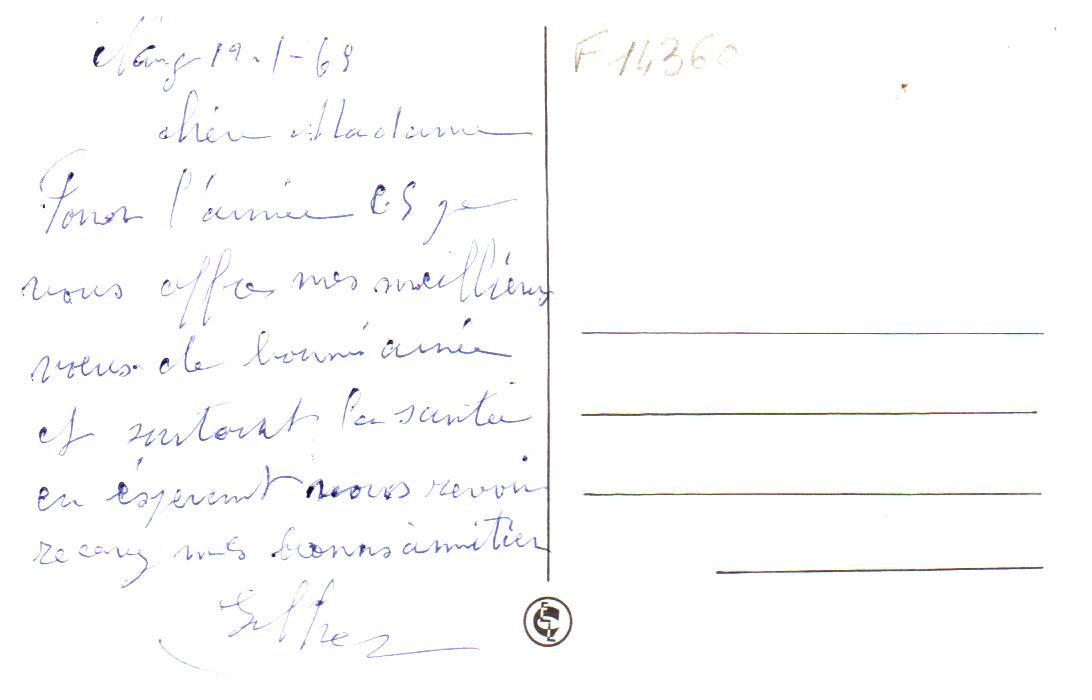 19-1-69
chère Madame
Pour l'année 69 je
vous offre mes meillieurs
vœux de bonne année
et surtout la santée
en ésperant vous revoir
recevez mes bonnes amitier
F 14360